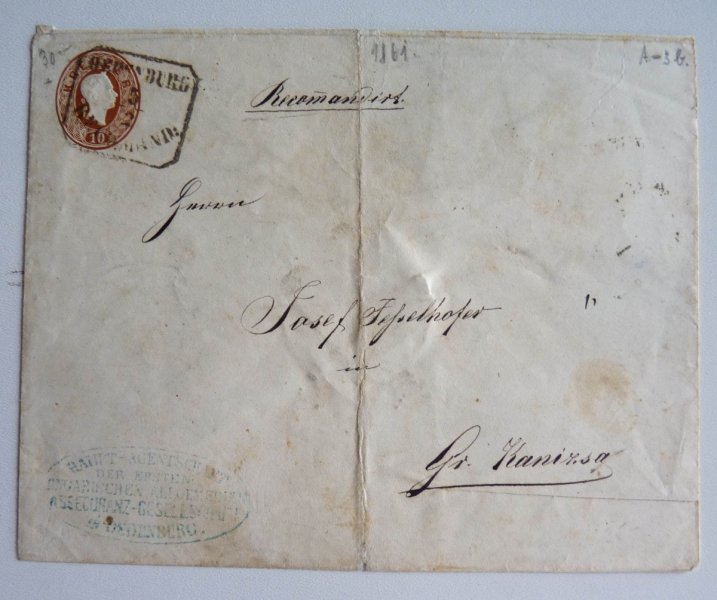 30
1861.
A-3b.
10
Recom̄andirt.
Herrn
Josef Feßelhofer
in
Gr. Kanizsa
HAUPT-AGENTSCHAFT
DER ERSTEN
UNGARISCHEN ALLGEMEINEN
ASSECURANZ-GESELLSCHAFT
OEDENBURG.